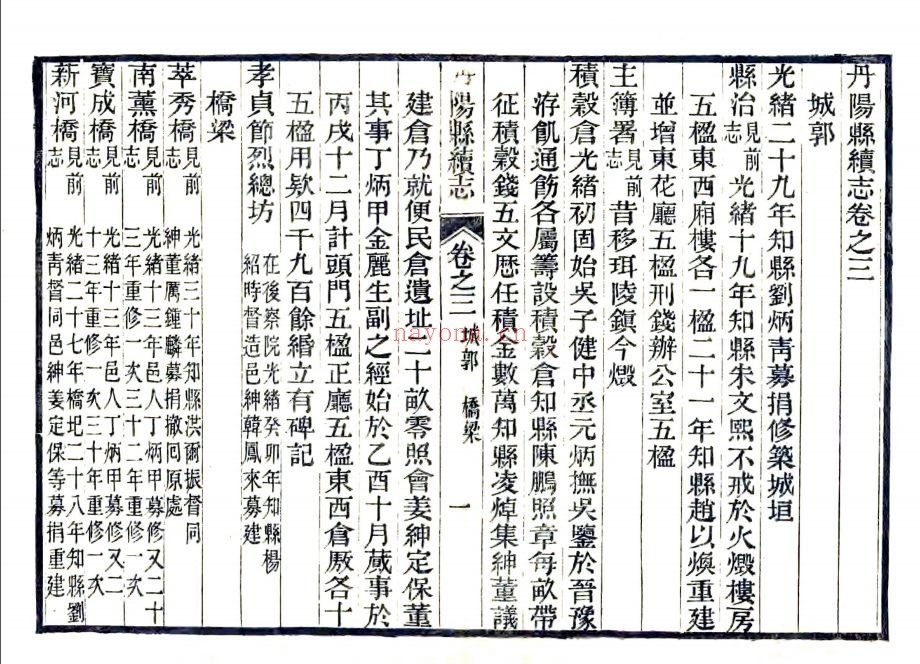 丹陽縣續志卷之三
城郭
光緒二十九年知縣劉炳青募捐修築城垣
縣治見前志光緒十九年知縣朱文熙不戒於火燬樓房
五楹東西廂樓各一楹二十一年知縣趙以煥重建
並增東花廳五楹刑錢辦公室五楹
主簿署見前志昔移珥陵鎮今燬
積穀倉光緒初固始吳子健中丞元炳撫吳鑒於晉豫
洊飢通飭各屬籌設積穀倉知縣陳鵬照章每畝帶
征積穀錢五文歷任積金數萬知縣凌焯集紳董議
丹陽縣續志 卷之三 城郭 橋梁 一
建倉乃就便民倉遺址二十畝零照會姜紳定保董
其事丁炳甲金麗生副之經始於乙酉十月蕆事於
丙戌十二月計頭門五楹正廳五楹東西倉厫各十
五楹用欵四千九百餘緡立有碑記
孝貞節烈總坊 在後察院光緒癸卯年知縣楊
紹時督造邑紳韓鳳來募建
橋梁
萃秀橋見前志 光緒三十年知縣洪爾振督同
紳董厲鍾麟募捐撤囘原處
南薰橋見前志 光緒十三年邑人丁炳甲募修又二十
三年重修一次三十二年重修一次
寶成橋見前志 光緒十三年邑人丁炳甲募修又二
十三年重修一次三十年重修一次
新河橋見前志 光緒二十七年橋圯二十八年知縣劉
炳青督同邑紳姜定保等募捐重建
nayona.cn